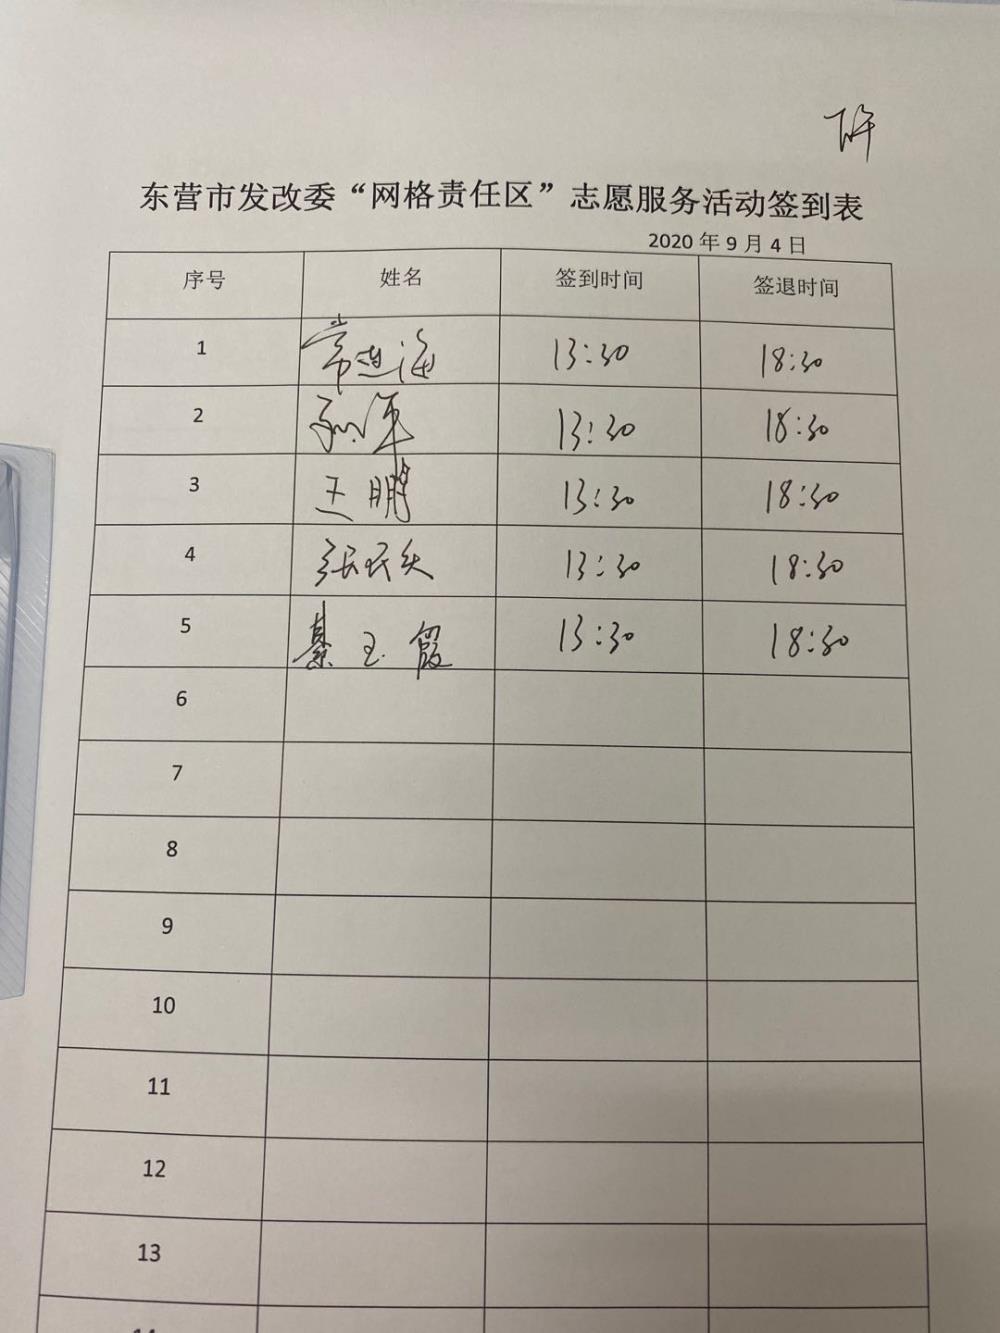 下午
东营市发改委“网格责任区”志愿服务活动签到表
2020 年 9 月 4 日
序号 姓名 签到时间 签退时间
1 常进海 13:30 18:30
2 孙军 13:30 18:30
3 王鹏 13:30 18:30
4 13:30 18:30
5 綦玉霞 13:30 18:30
6
7
8
9
10
11
12
13